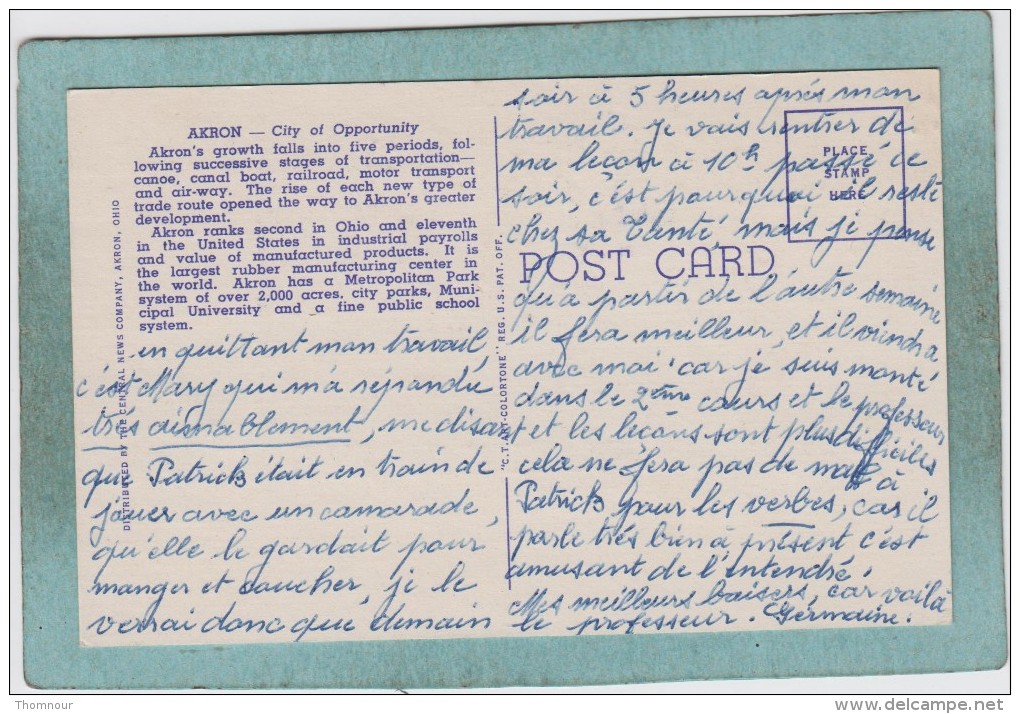 AKRON — City of Opportunity
Akron's growth falls into five periods, fol-
lowing successive stages of transportation—
canoe, canal boat, railroad, motor transport
and air-way. The rise of each new type of
trade route opened the way to Akron's greater
development.
Akron ranks second in Ohio and eleventh
in the United States in industrial payrolls
and value of manufactured products. It is
the largest rubber manufacturing center in
the world. Akron has a Metropolitan Park
system of over 2,000 acres, city parks, Muni-
cipal University and a fine public school
system.
DISTRIBUTED BY THE CENTRAL NEWS COMPANY, AKRON, OHIO
en quittant mon travail,
c'est Mary qui m'a répondu
très aimablement, me disant
que Patrick était en train de
jouer avec un camarade,
qu'elle le gardait pour
manger et coucher, je le
verrai donc que demain
"C.T. ART-COLORTONE" REG. U.S. PAT. OFF.
soir à 5 heures après mon
travail. Je vais rentrer de
ma leçon à 10h passé ce
soir, c'est pourquoi il reste
chez sa Tante, mais je pense
PLACE
STAMP
HERE
POST CARD
qu'à partir de l'autre semaine
il fera meilleur, et il viendra
avec moi car je suis monté
dans le 2ème cours et le professeur
et les leçons sont plus difficiles
cela ne fera pas de mal à
Patrick pour les verbes, car il
parle très bien à présent c'est
amusant de l'entendré.
Mes meilleurs baisers, car voilà
le professeur. Germaine.
Thomnour
www.delcampe.net